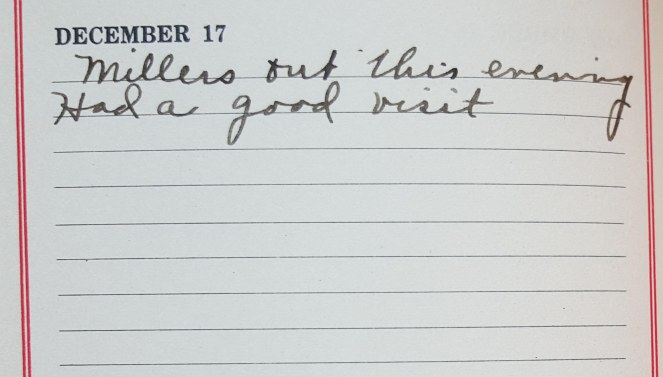 DECEMBER 17
Millers out this evening
Had a good visit